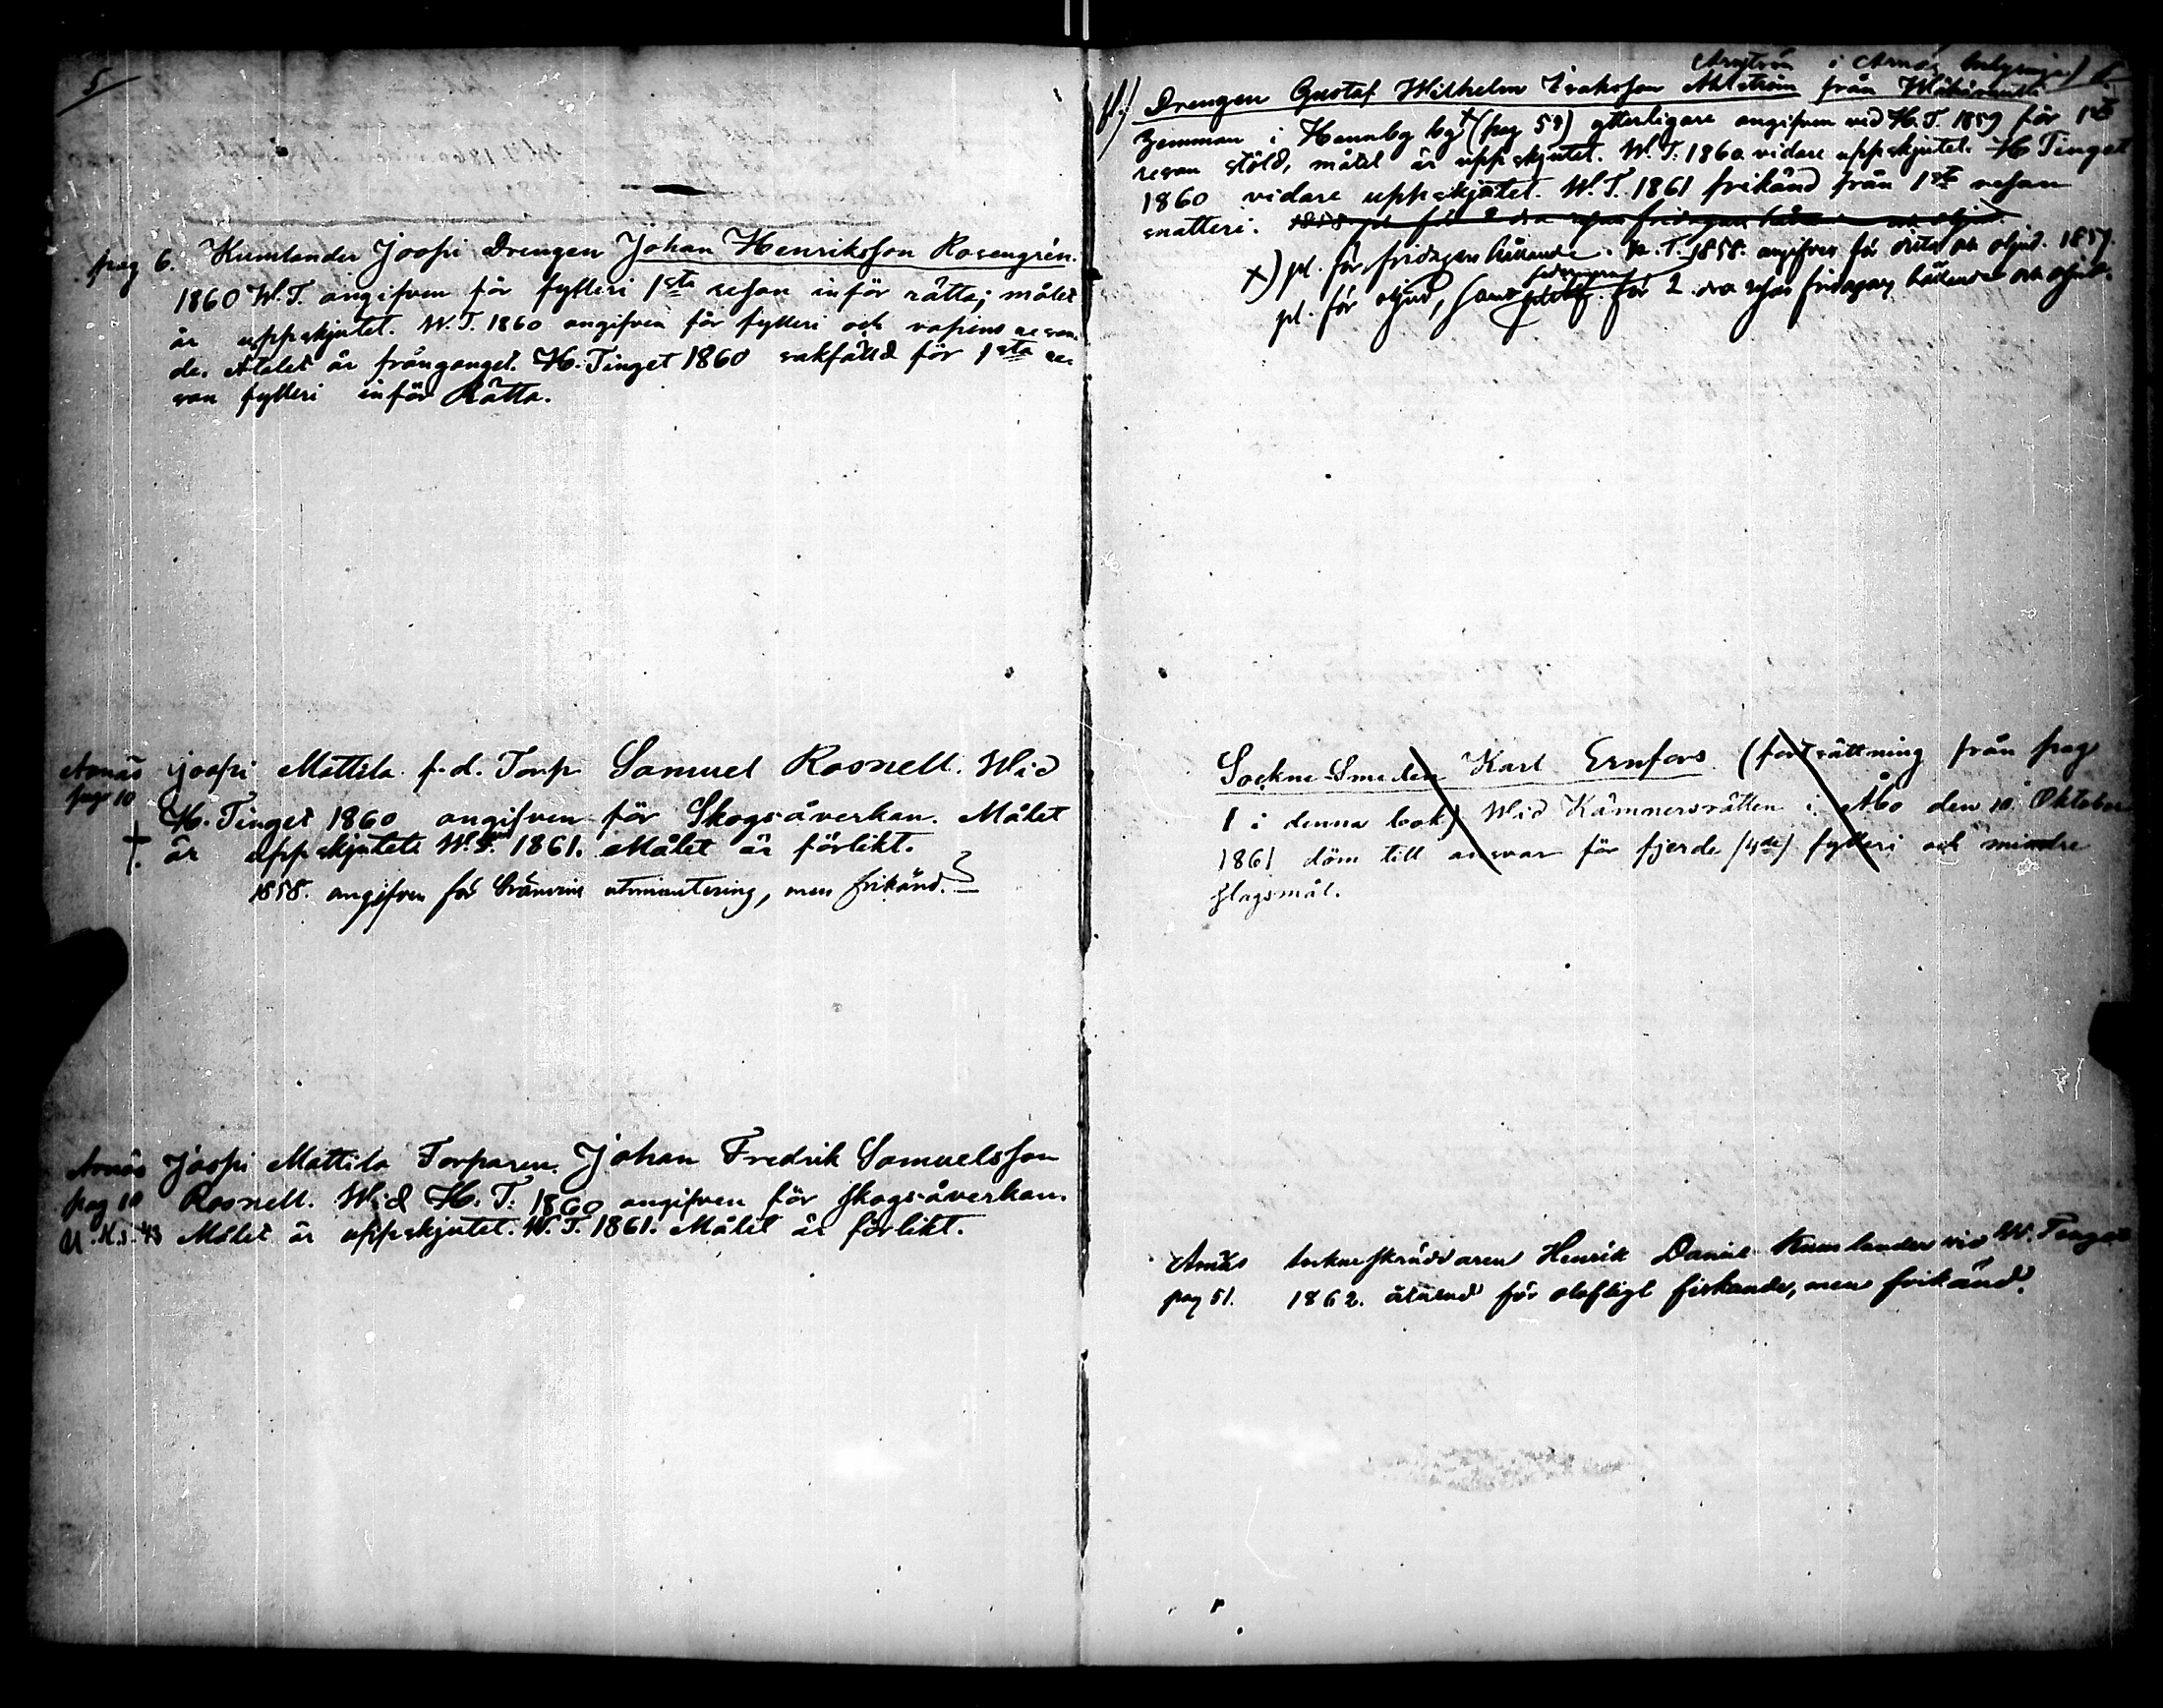 5
pag 6. Kumlander Joopi Drengen Johan Henriksson Rosengrén.
1860 W.T. angifven för fylleri 1sta resan inför rätta; målet
är uppskjutet. W.T. 1860 angifven för fylleri och
de. Åtalet är frångånget. H. Tinget 1860 sakfälld för 1sta re-
san fylleri inför Rätta.
Arnäs Joopi Mattila f.d. Torp Samuel Rosnell. Wid
pag 10
H. Tinget 1860 angifven för Skogsåverkan. Målet
är uppskjutet W.T. 1861. Målet är förlikt.
1858. angifven för bränvins utminutering, men frikänd.
Arnäs Joopi Mattila Torparen Johan Fredrik Samuelsson
pag 10 Rosnell. Wid H. T. 1860 angifven för skogsåverkan.
Målet är uppskjutet. W. T. 1861. Målet är förlikt.
i Arnäs
Drengen Gustaf Wilhelm Isaksson Ahlström från
hemman i Hannby by + (pag 58) ytterligare angifven vid H. T 1859 för 1sta
resan stöld, målet är uppskjutet. W. T. 1860 vidare uppskjutet. H Tinget
1860 vidare uppskjutet. W. T. 1861 frikänd från 1sta resan
snatteri. 1858 pl för 2 dra resan
x) pl. för fridagars hållande. W. T. 1858. angifven för och oljud. 1859.
pl. för oljud, samt för 2 dra resan fridagars hållande och oljud.
Sockne Smeden Karl Ernfors (fortsättning från pag
1 i denna bok) Wid Kämnersrätten i Åbo den 10 Oktober
1861 döm till ansvar för fjerde (4de) fylleri och mindre
slagsmål.
Arnäs Sockneskräddaren Henrik Daniel Kumlander vid W. Tinget
pag 51. 1862. åtalad för olofligt fiskande, men frikänd.